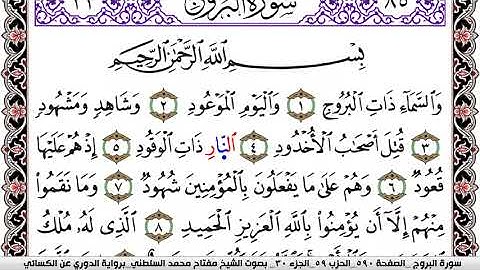 ٢٢ سُورَةُ البُرُوجِ ٨٥
بِسْمِ ٱللَّهِ ٱلرَّحْمَٰنِ ٱلرَّحِيمِ
وَٱلسَّمَآءِ ذَاتِ ٱلْبُرُوجِ ١ وَٱلْيَوْمِ ٱلْمَوْعُودِ ٢ وَشَاهِدٍ وَمَشْهُودٍ
٣ قُتِلَ أَصْحَٰبُ ٱلْأُخْدُودِ ٤ ٱلنَّارِ ذَاتِ ٱلْوَقُودِ ٥ إِذْ هُمْ عَلَيْهَا
قُعُودٌ ٦ وَهُمْ عَلَىٰ مَا يَفْعَلُونَ بِٱلْمُؤْمِنِينَ شُهُودٌ ٧ وَمَا نَقَمُوا۟
مِنْهُمْ إِلَّآ أَن يُؤْمِنُوا۟ بِٱللَّهِ ٱلْعَزِيزِ ٱلْحَمِيدِ ٨ ٱلَّذِى لَهُۥ مُلْكُ
سورة البروج _الصفحة ٥٩٠_الحزب ٥٩_الجزء ٣٠_ بصوت الشيخ مفتاح محمد السلطني_برواية الدوري عن الكسائي